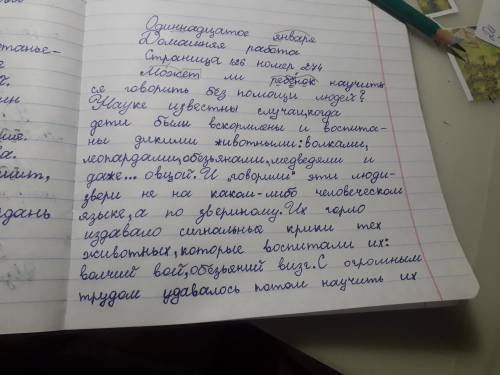 Одиннадцатое января
Домашняя работа
Страница 126 номер 274
Может ли ребёнок научить
ся говорить без помощи людей?
Науке известны случаи,когда
дети были вскормлены и воспита-
ны дикими животными:волками,
леопардами,обезьянами,медведями и
даже... овцой. И "говорили" эти люди-
звери не на каком-либо человеческом
языке,а по звериному. Их горло
издавало сигнальные крики тех
животных, которые воспитали их:
волчий вой,обезьяний визг. С огромным
трудом удавалось потом научить их